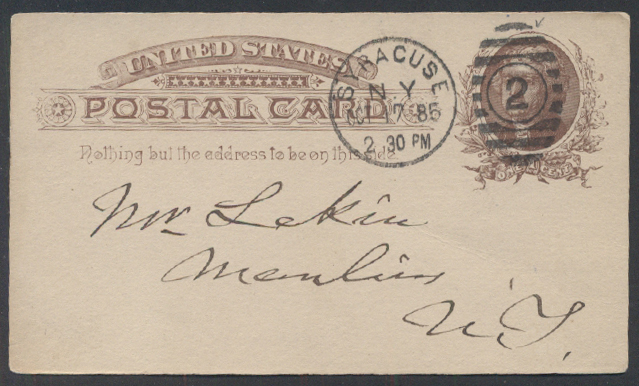 UNITED STATES
POSTAL CARD
Nothing but the address to be on this side.
SYRACUSE
N Y
OCT 17 85
2 30 PM
2
ONE CENT
Mr. Lekin
Manlius
N.Y.